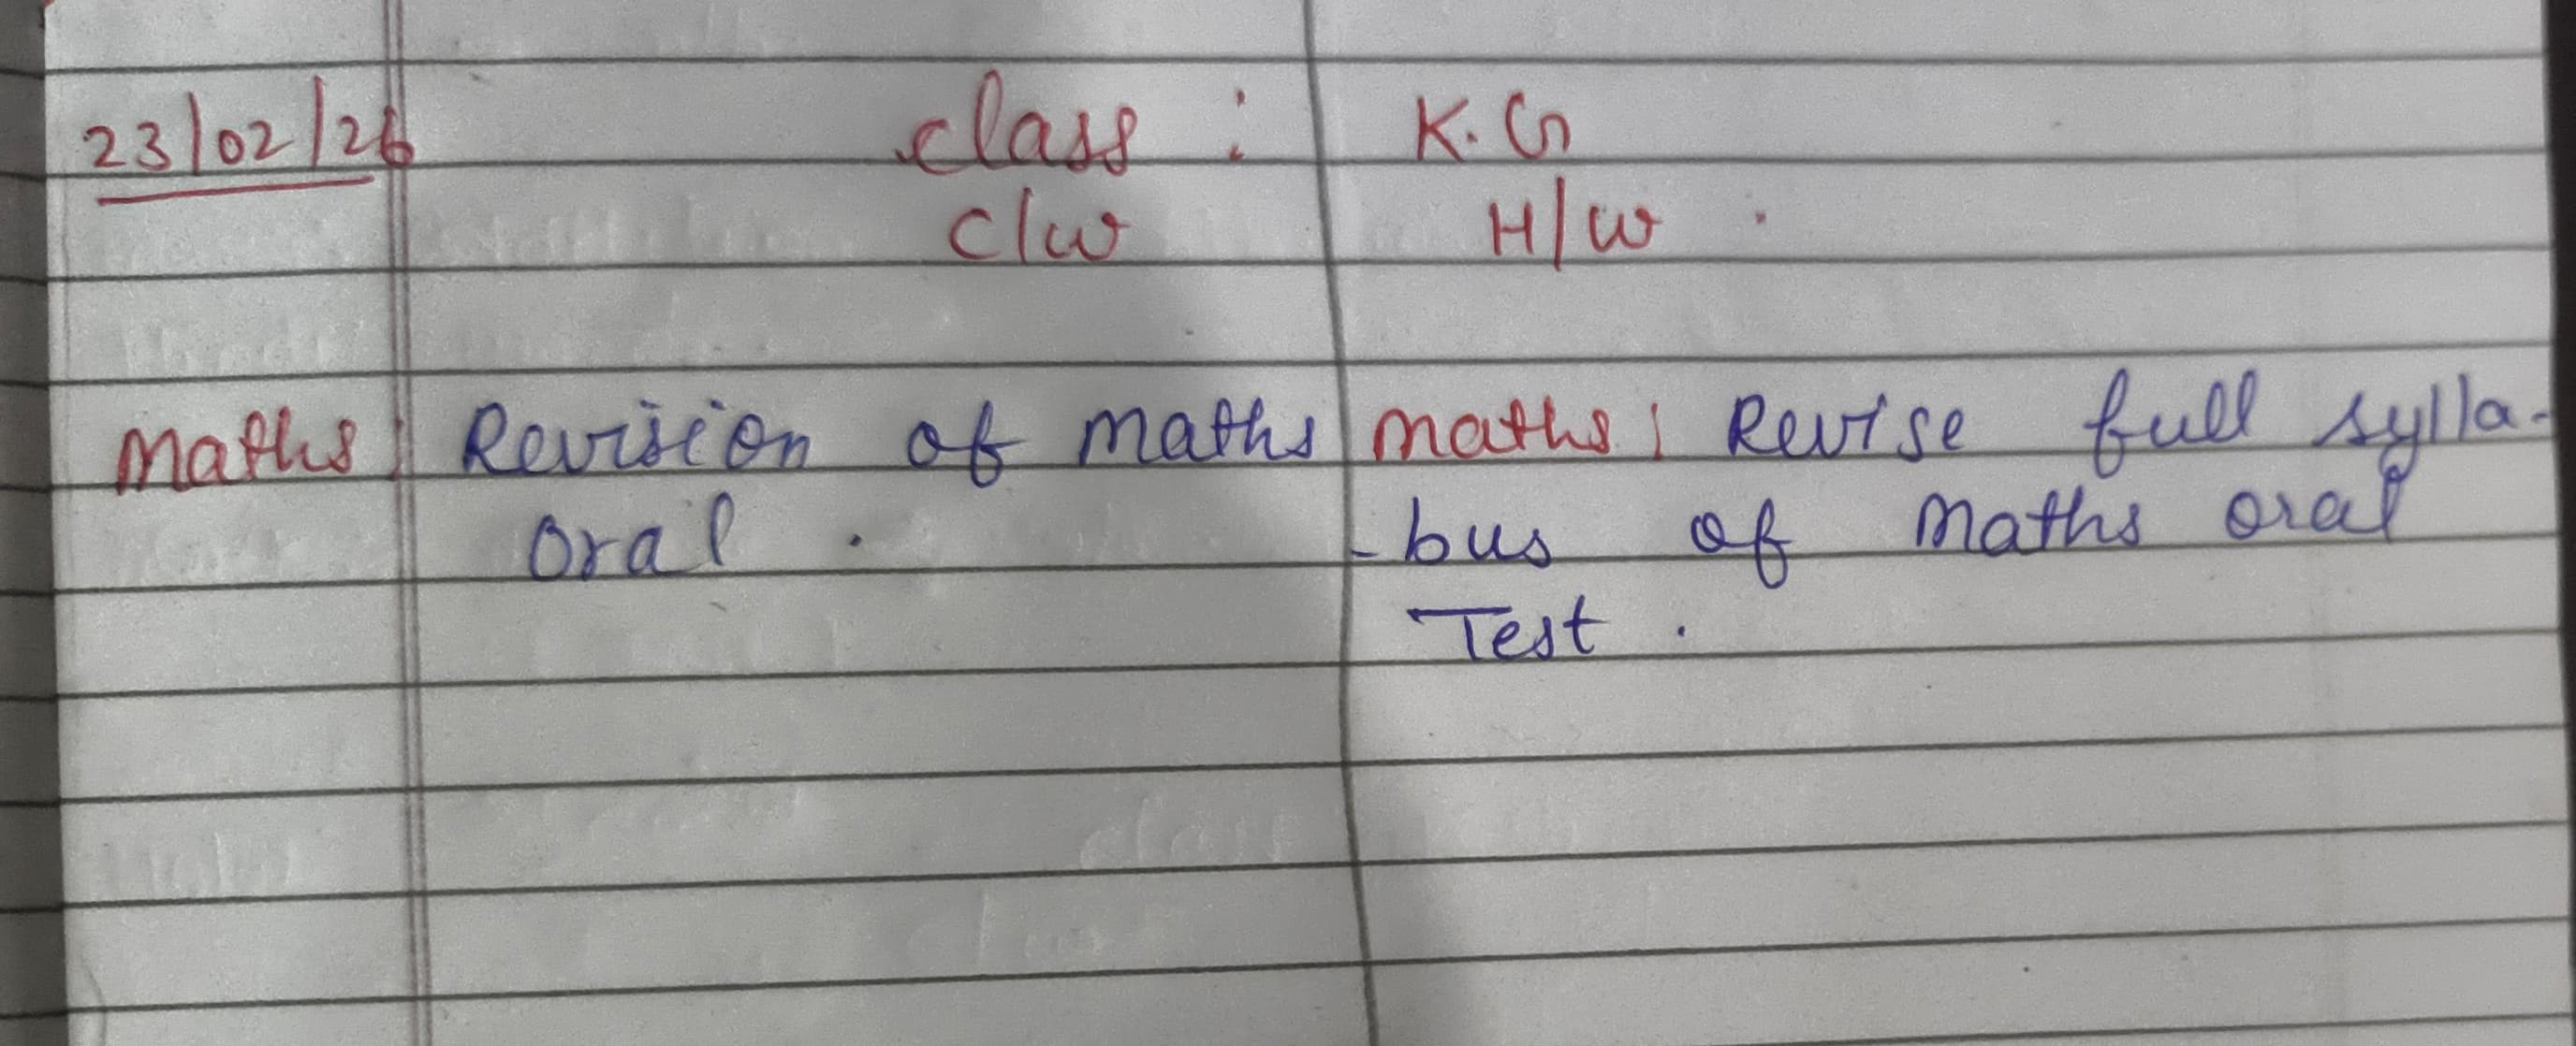 23/02/26 class : K.G
C/w H/w .
Maths: Revision of Maths
Oral .
Maths: Revise full sylla-
-bus of Maths oral
Test .